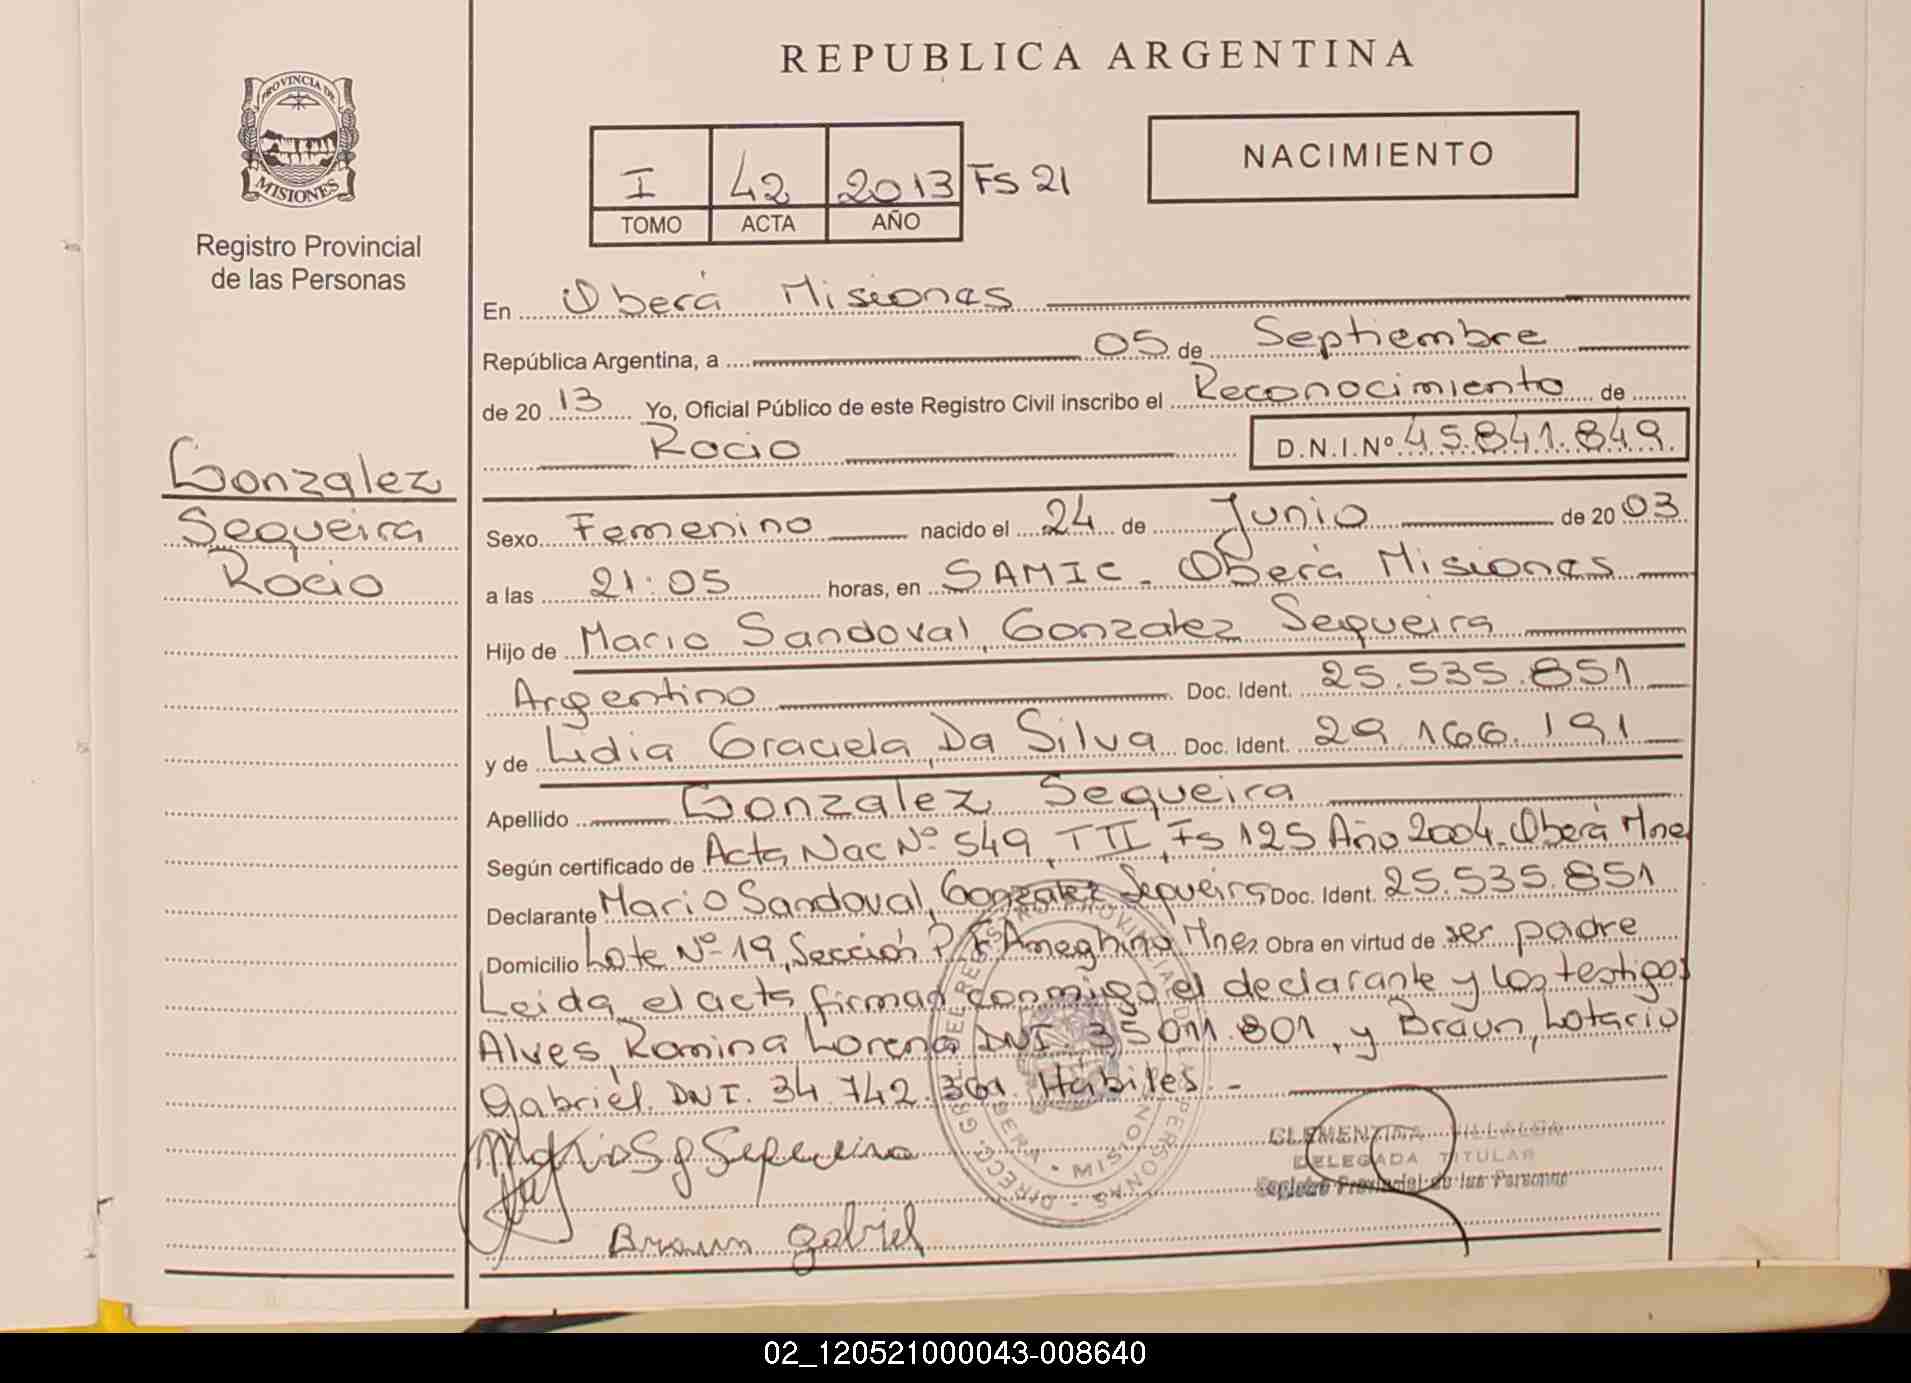 REPUBLICA ARGENTINA
PROVINCIA DE
MISIONES
Registro Provincial
de las Personas
I 42 2013 FS 21
TOMO ACTA AÑO
NACIMIENTO
En Oberá Misiones
República Argentina, a 05 de Septiembre
de 20 13 Yo, Oficial Público de este Registro Civil inscribo el Reconocimiento de
Rocio D.N.I.Nº 45.841.849.
Gonzalez
Sequeira
Rocio
Sexo Femenino nacido el 24 de Junio de 20 03
a las 21:05 horas, en SAMIC - Oberá Misiones
Hijo de Mario Sandoval, Gonzalez Sequeira
Argentino Doc. Ident. 25.535.851
y de Lidia Graciela, Da Silva Doc. Ident. 29.166.191
Apellido Gonzalez Sequeira
Según certificado de Acta Nac Nº 549, T II, Fs 125 Año 2004. Oberá Mnes
Declarante Mario Sandoval, Gonzalez Sequeira Doc. Ident. 25.535.851
Domicilio Lote Nº 19, Sección F. Ameghino Mnes Obra en virtud de ser padre
Leida el acta, firman conmigo el declarante y los testigos
Alves, Romina Lorena DNI. 35 011.801, y Braun, Lotario
Gabriel. DNI. 34.742.361. Hábiles. -
Mario S g Sequeira
Braun gabriel
CLEMENTINA VILLALBA
DELEGADA TITULAR
Registro Provincial de las Personas
02_120521000043-008640